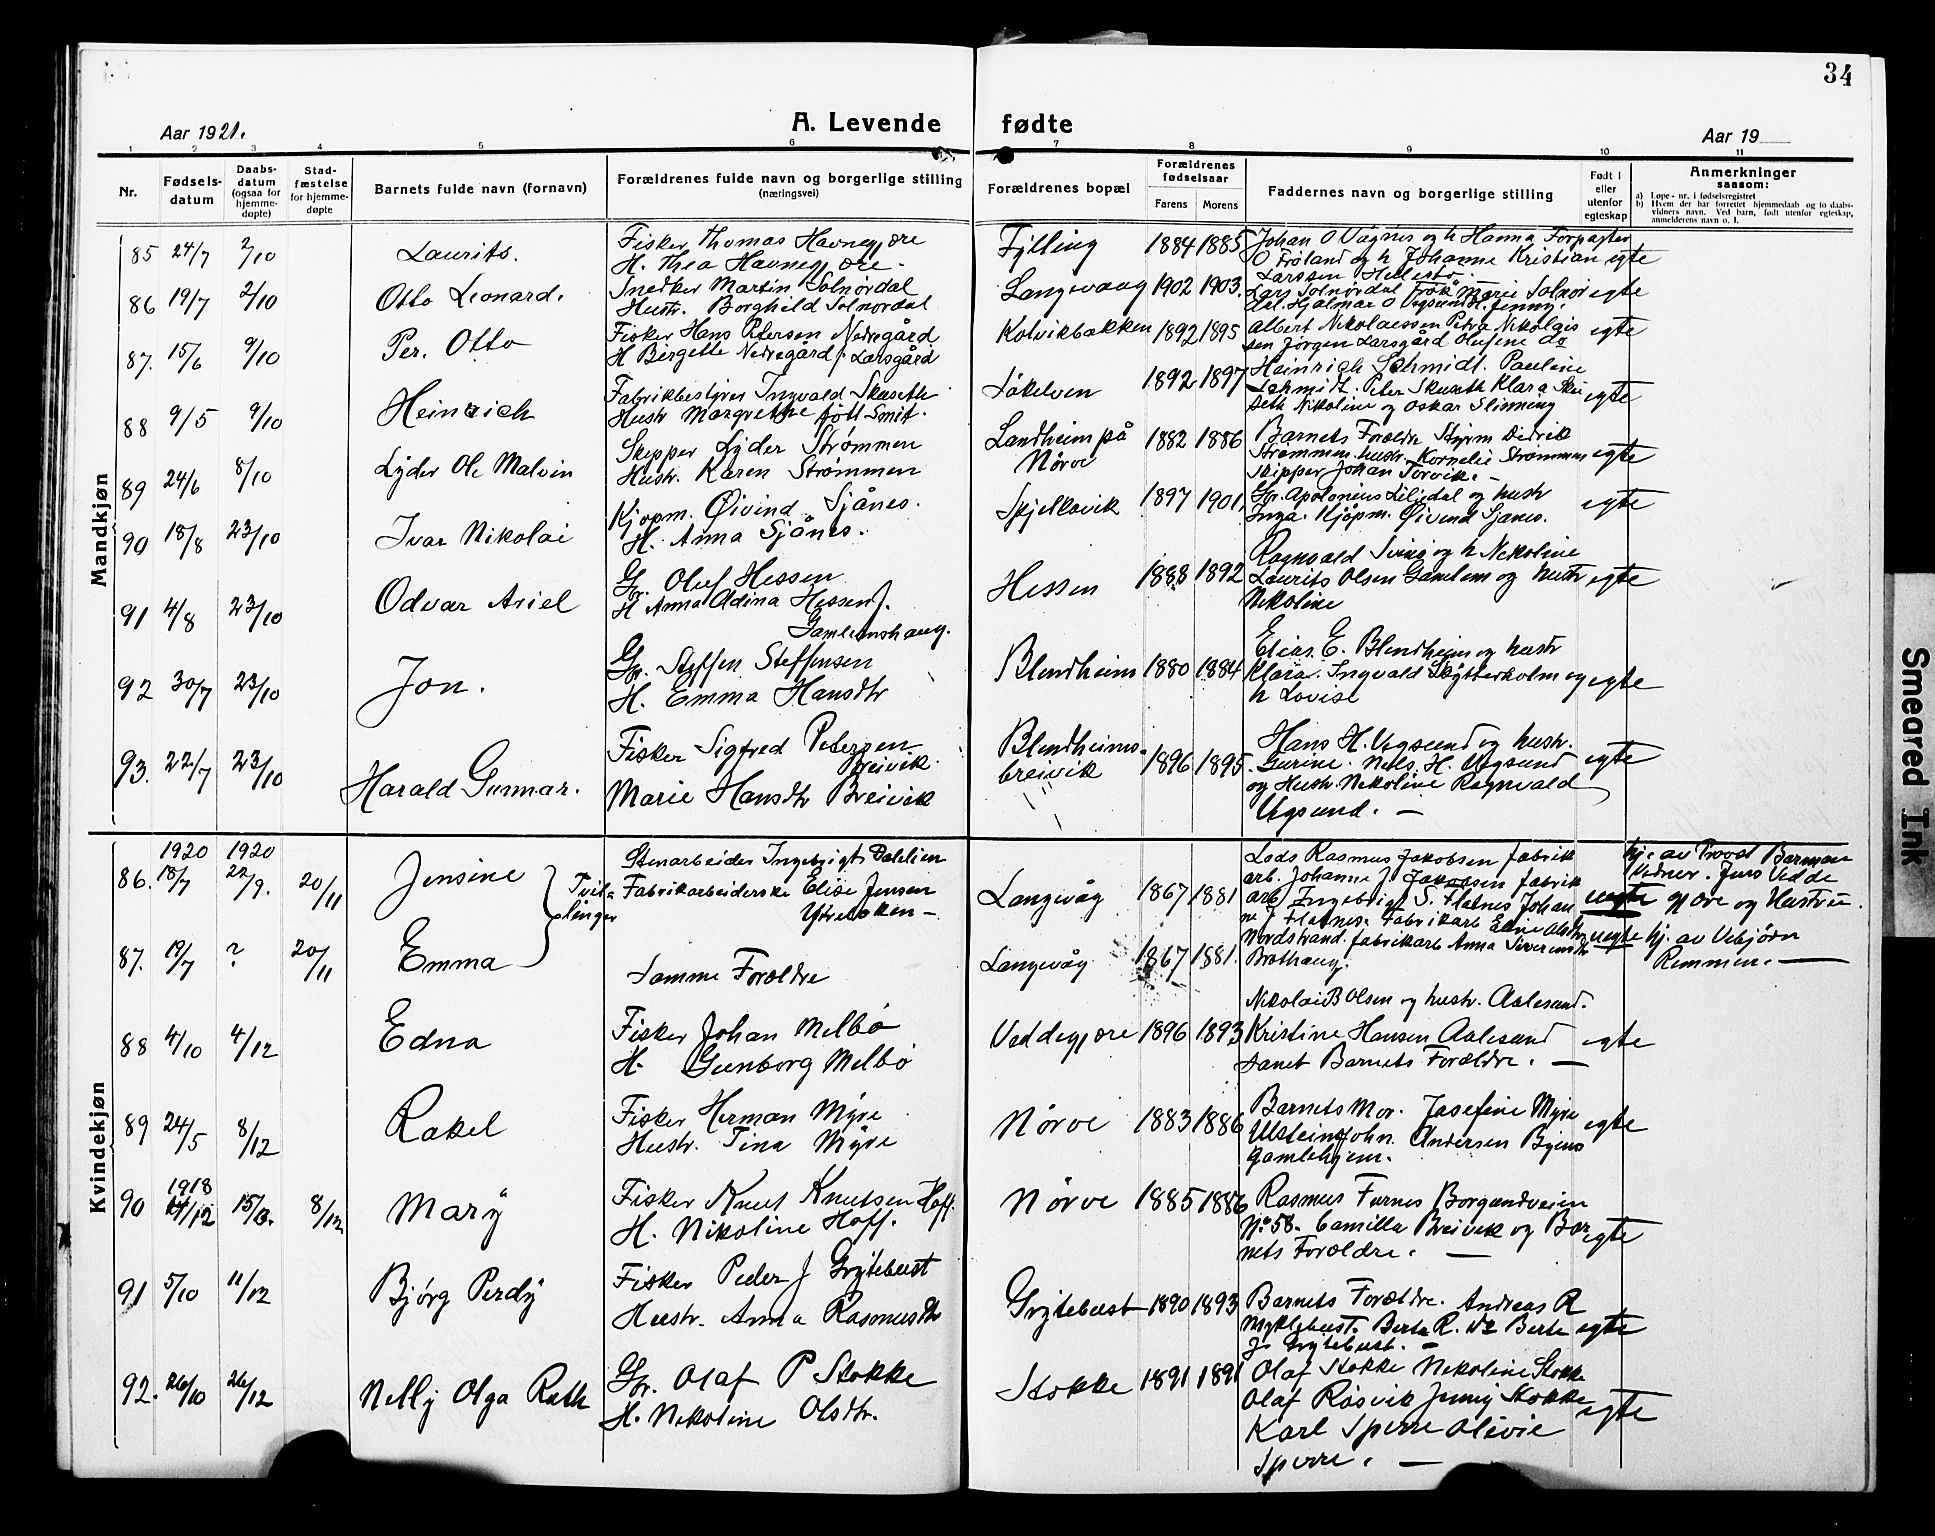 34
Aar 1921.
A. Levende fødte
Aar 19
1 2 3 4 5 6 7 8 9 10 11
Nr.
Fødsels-
datum
Daabs-
datum
(ogsaa for
hjemme-
døpte)
Stad-
fæstelse
for hjemme-
døpte
Barnets fulde navn (fornavn)
Forældrenes fulde navn og borgerlige stilling
(næringsvei)
Forældrenes bopæl
Forældrenes
fødselsaar
Farens Morens
Faddernes navn og borgerlige stilling
Født i
eller
utenfor
egteskap
Anmerkninger
saasom:
a) Løpe-nr. i fødselsregistret
b) Hvem der har forrettet hjemmedaab og to daabs-
vidners navn. Ved barn, født utenfor egteskap,
anmelderens navn o. l.
Mandkjøn
85 24/7 2/10 Laurits.
Fisker Thomas Havnegjøre
H. Thea Havnegjøre.
Fylling 1884 1885
Johan O Vågnes og h Hanna Forpagter
O Frøland og h Johanne Kristian
Larssen Hellestø.
egte
86 19/7 2/10 Otto Leonard.
Snedker Martin Solnørdal
Hustr. Borghild Solnørdal
Langevaag 1902 1903.
Lars Solnørdal Frøk Marie Solnør
Arb. Hjalmar O Vegsund h. Jenny.
egte
87. 15/6 9/10 Per. Otto
Fisker Hans Petersen Nedregård
H Bergette Nedregård f. Larsgård
Kolvikbakken 1892 1895
Albert Nikolaessen Petra Nikolais
sen Jørgen Larsgård Olufine do
egte
88 9/5 9/10 Heinrich
Fabrikbestyrer Ingvald Skuseth
Hustr Margrethe født Smit.
Søkelven 1892 1897
Heinrich Schmidt. Pauline
Schmidt. Peter Skuseth Klara Sku
seth Nikoline og Oskar Slinning
egte
89 24/6 8/10 Lyder Ole Malvin
Skipper Lyder Strømmen
Hustr. Karen Strømmen
Landheim på
Nørve
1882 1886
Barnets Foreldre Styrm Didrik
Strømmen hustr. Kornelie Strømmen
Skipper Johan Torvik. —
egte
90 18/8 23/10 Ivar Nikolai
Kjøpm. Øivind Sjånes.
H. Anna Sjånes.
Spjelkavik 1897 1901.
Gr. Apolonius Liljedal og hustr
Inga. Kjøpm. Øivind Sjånes.
egte
91 4/8 23/10 Odvar Ariel
Gr. Oluf Hessen
H Anna Adina Hessen f.
Gamlemshaug.
Hessen 1888 1892
Ragnvald Svinø og h Nekoline
Laurits Olsen Gamlem og hustr
Nekoline
egte
92 30/7 23/10 Jon.
Gr. Steffen Steffensen
H. Emma Hansdtr
Blindheim 1880 1884
Elias. E. Blindheim og hustr
Klara. Ingvald Skytterholm og
h Lovise
egte
93. 22/7 23/10 Harald Gunnar.
Fisker Sigfred Petersen
Breivik.
Marie Hansdtr Breivik
Blindheims-
breivik
1896 1895.
Hans H. Vegsund og hustr.
Gurine. Nels. H. Vegsund
og Hustr. Nekoline Ragnvald
Vegsund. —
egte
Kvindekjøn
1920 1920
86. 18/7 22/9. 20/11 Jensine
Tvil-
linger
Stenarbeider Ingebrigt Dahlien
Fabrikarbeiderske Elise Jensen
Ytrebakken —
Langevåg 1867 1881
Lods Rasmus Jakobsen fabrik
arb. Johanne J Jakobsen fabrik
arb Ingebrigt S. Flatnes Johan
ne J Flatnes. Fabrikarb Eline Olsdtr
Nordstrand. fabrikarb Anna Siverinsdtr
Brathaug.
uegte
hj. av Provst Barman
Vidner. Jens Vedde
gjøre og Hustru.
87. 19/7 ? 20/11 Emma
Samme Forældre
Langevåg 1867 1881.
uegte
hj. av Vebjørn
Remmen. —
88 4/10 4/12 Edna
Fisker Johan Melbø
H. Gunborg Melbø
Veddegjøre 1896 1893
Nikolai B Olsen og hustr. Aalesund.
Kristine Hansen Aalesund
samt Barnets Forældre. —
egte
89 24/5 8/12 Rakel
Fisker Herman Myre
Hustr. Tina Myre
Nørve 1883 1886
Barnets Mor. Josefine Myre
Ulstein John. Andersen Byens
Gamlehjem.
egte
1918
90 8/12 Mary
Fisker Knut Knutsen Hoff.
H. Nikoline Hoff.
Nørve 1885 1886
Rasmus Furnes Borgundveien
No 58. Camilla Breivik og Bar
nets Forældre. —
egte
91 5/10 11/12 Bjørg Perdy
Fisker Peder J Grytebust
Hustr. Anna Rasmusdtr
Grytebust 1890 1893
Barnets Forældre. Andreas R
Myklebust. Berte R. do Berte
J. Grytebust. —
egte
92. 26/10 26/12 Nelly Olga Ruth
Gr. Olaf P Stokke
H. Nekoline Olsdtr.
Stokke 1891 1891
Olaf Stokke Nekoline Stokke
Olaf Røsvik Jenny Stokke
Karl Sperre Olivie
Sperre. —
egte
Smeared Ink